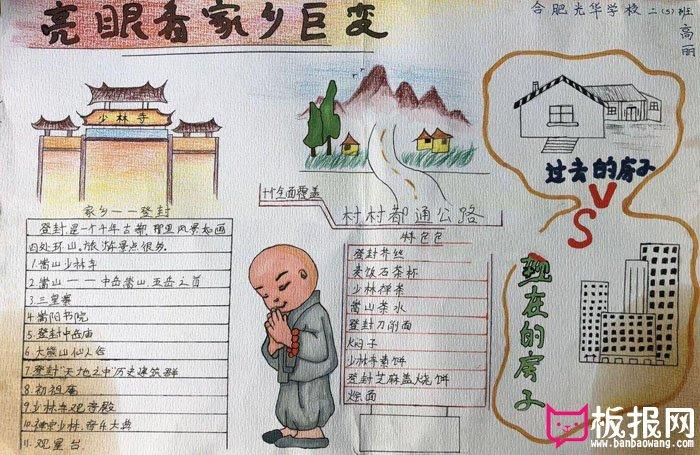 亮眼看家乡巨变
合肥光华学校二(5)班
高丽
少林寺
家乡——登封
登封是一个千年古都，那里风景如画
四处环山。旅游景点很多。
1.嵩山少林寺
2.嵩山——中岳嵩山,五岳之首
3.三皇寨
4.嵩阳书院
5.登封中岳庙
6.大熊山仙人谷
7.登封"天地之中"历史建筑群
8.初祖庵
9.少林寺观音殿
10.禅宗少林.音乐大典
11.观星台
全面覆盖
村村都通公路
特色包
登封芥丝
麦饭石茶杯
少林禅茶
嵩山茶水
登封刀削面
焖子
少林寺素饼
登封芝麻盖烧饼
烩面
过去的房子
VS
现在的房子
板报网
www.banbaowang.com